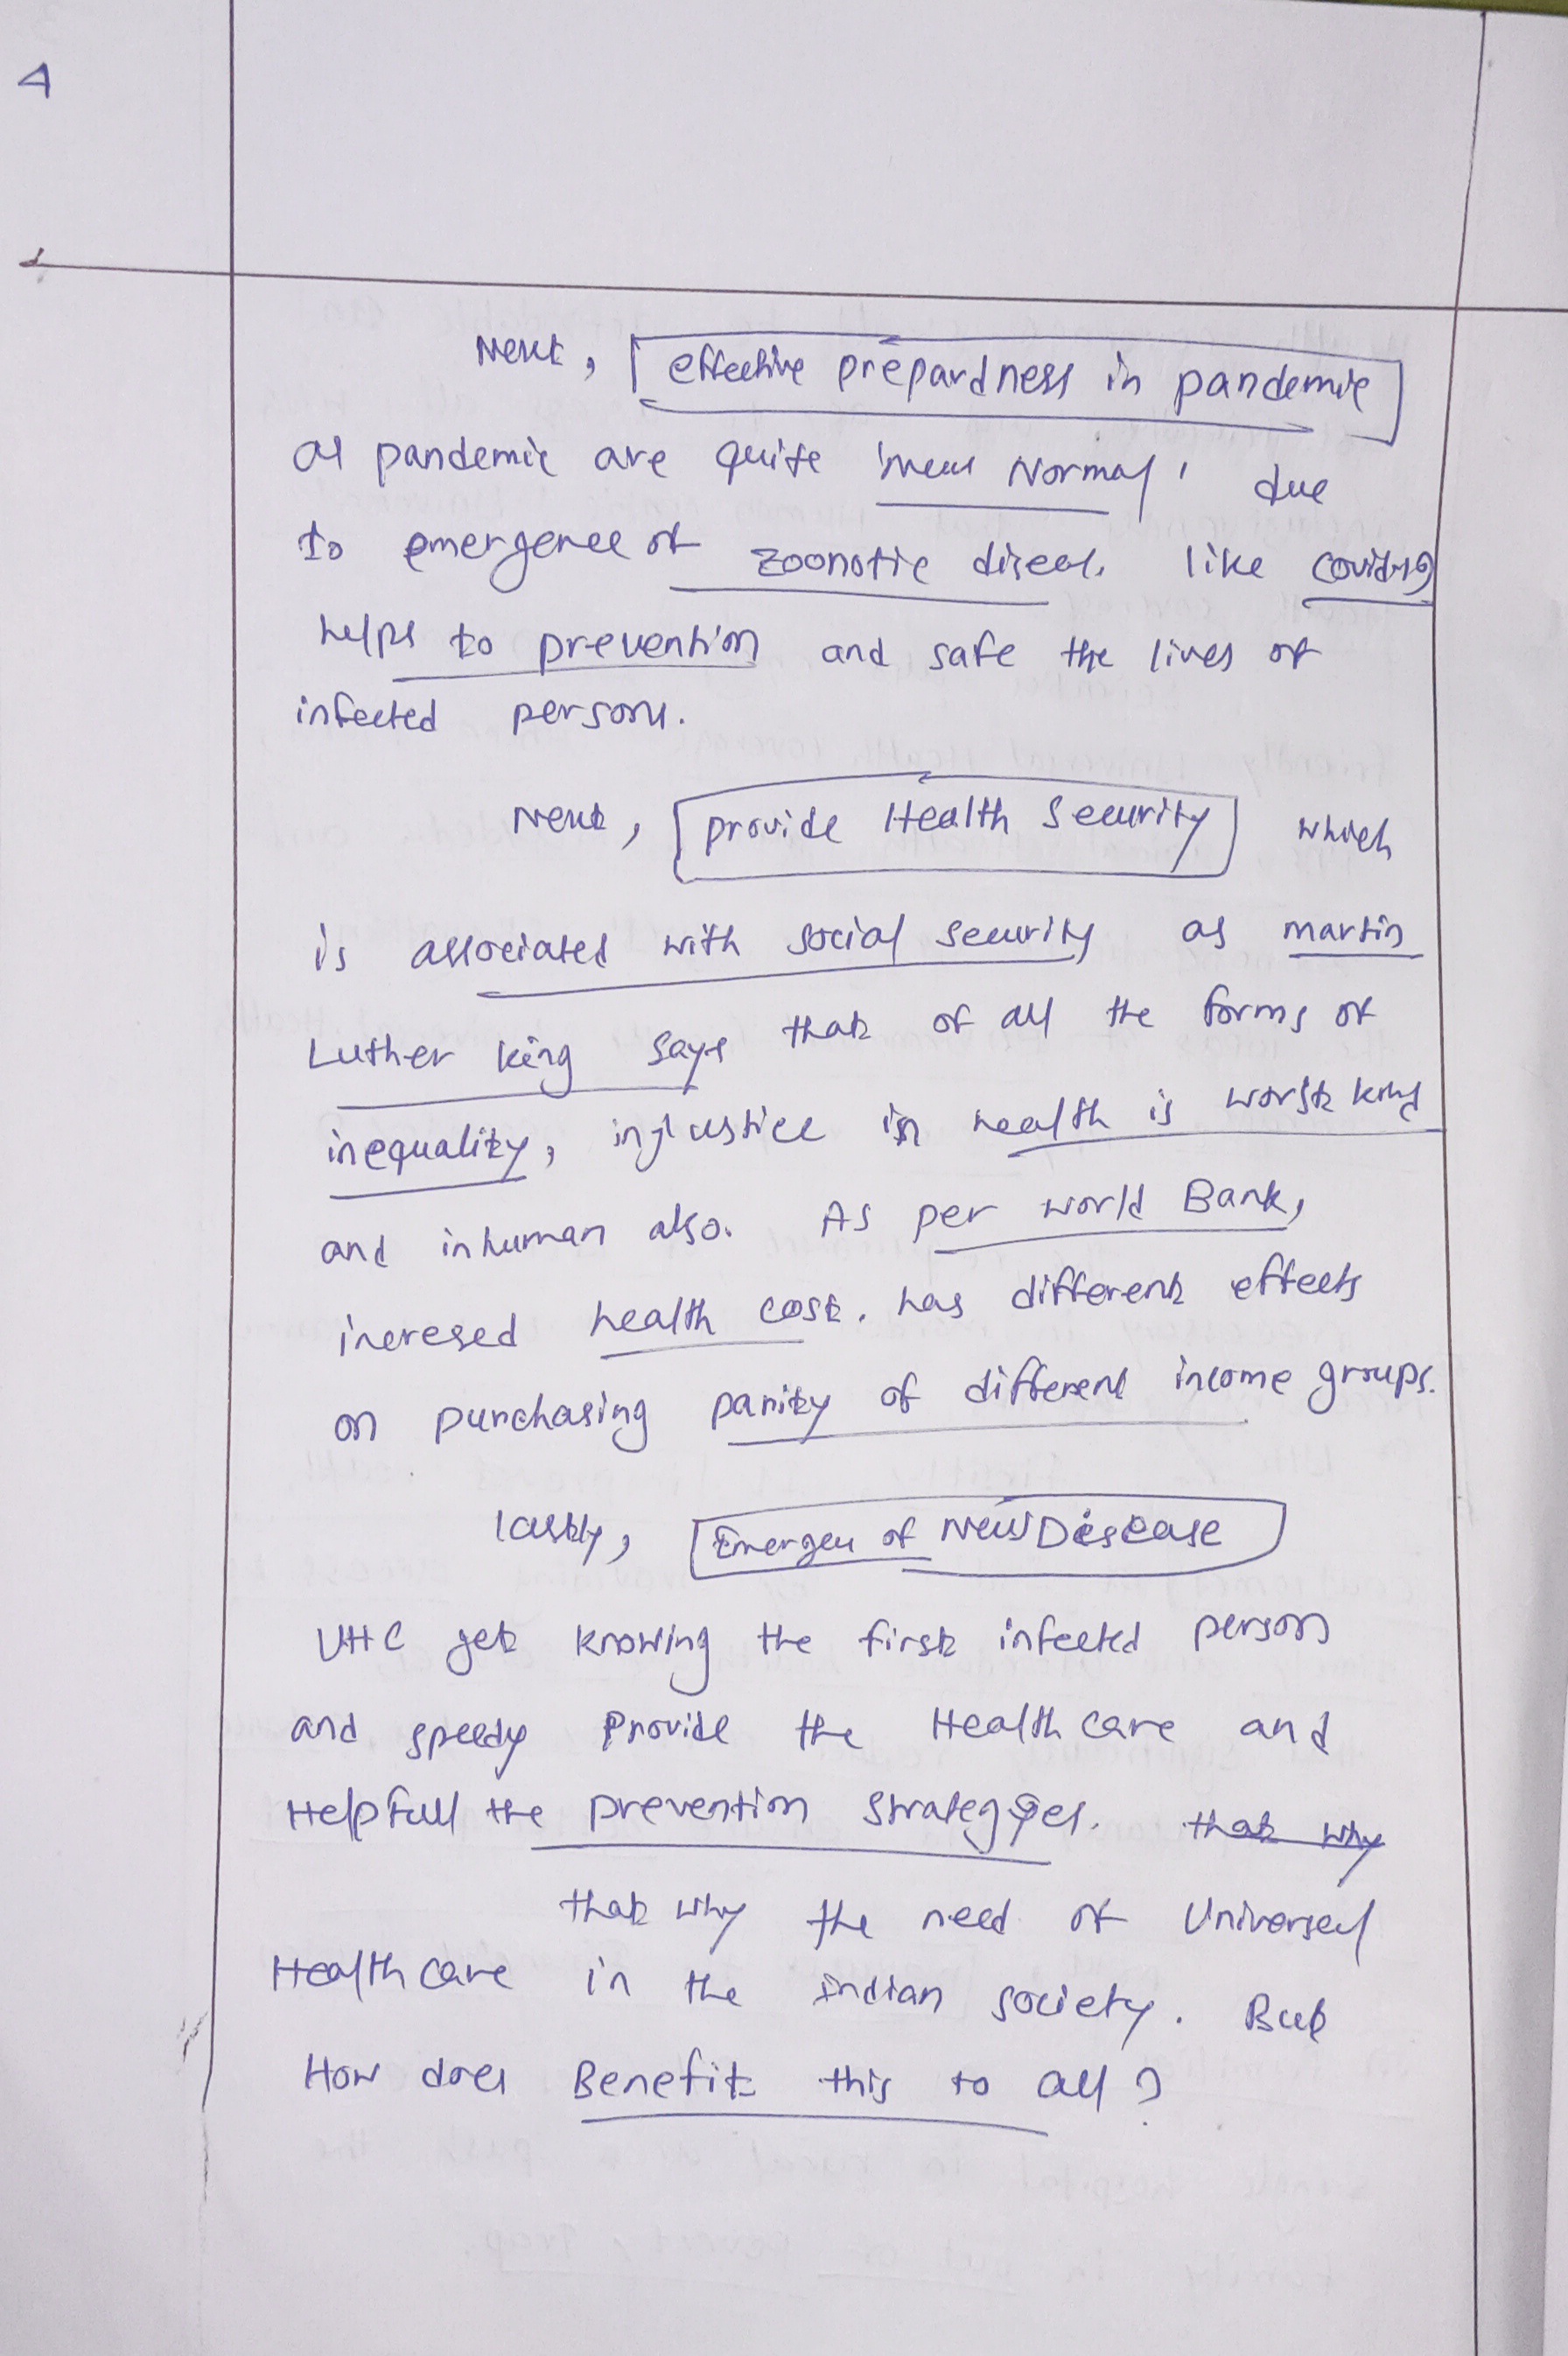 4
Next, effective prepardness in pandemic
as pandemic are quite 'new Normal' due
to emergence of zoonotic diseas. like covid19
helps to prevention and safe the lives of
infected persons.
Next, provide Health Security which
is associated with social security as martin
Luther king says that of all the forms of
inequality, injustice in health is worst kind
and inhuman also. As per world Bank,
incresed health cost. has different effects
on purchasing parity of different income groups.
lastly, Emergen of New Disease
UHC get knowing the first infected person
and speedy provide the Health care and
Helpfull the prevention strategies. that why
that why the need of Universal
Health care in the indian society. But
How does Benefit this to all ?